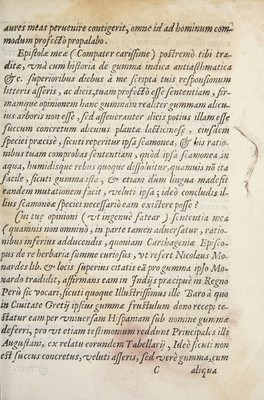 aures meas peruenire contigerit, omne id ad hominum com-
modum profectò propalabo.
Epistolæ meæ (Compater carissime) postremò tibi tra-
ditæ, vnà cum historia de gumma indica antiasthmatica
&c. superioribus diebus à me scripta tuis responsionum
litteris asseris, ac dicis, tuam profectò esse sententiam, fir-
mamque opinionem hanc gummam realiter gummam alicu-
ius arboris non esse, sed asseueranter dicis potius illam esse
succum concretum alicuius plantæ lactècinosæ, eiusdem
speciei præcisè, sicuti reperitur ipsa scamonea, & his ratio-
nibus tuam comprobas sententiam, quòd ipsa scamonea in
aqua, humidisque rebus quoque dissoluitur, quamuis nõ ita
facile, sicuti gumma ista, & etiã dum lingua madesit
eandem mutationem facit, veluti ipsa; ideò concludis il-
lius scamoneæ speciei necessariò eam existere posse?
in tuq opinioni (vt ingenuè fatear) sententia mea
(quamuis non omninò, in parte tamen aduersatur, ratio-
nibus inferius adducendis, quoniam Carthagenæ Episco-
pus de re herbaria summè curiosus, vt refert Nicolaus Mo-
nardes lib. & locis superius citatis eã pro gumma ipso Mo-
nardo tradidit, affirmans eam in Indijs præcipuè in Regno
Perù sic vocari, sicuti quoque Illustrissimus ille Baro à quo
in Ciuitate Gretij ipsius gummæ frustulum dono recepi te-
statur eam per vniuersam Hispaniam sub nomine gummæ
deferri, pro vt etiam testimonium reddunt Principales illi
Augustani, ex relatu eorundem Tabellarij, Ideò sicuti non
est succus concretus, veluti asseris, sed verè gumma, cum
C aliqua